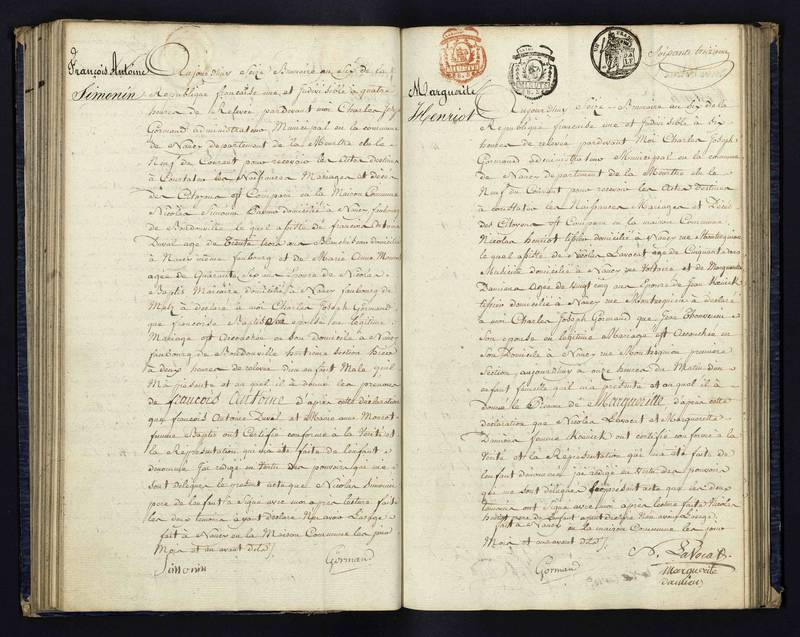 François Antoine
Simonin
Aujourdhuy Seize Brumaire an Six de la
République françoise une et Indivisible à quatre
heures de Relevée pardevant moi Charles Joseph
Gormand administrateur Municipal en la commune
de Nancy departement de la Meurthe élu le
Neuf du Courant pour recevoir les actes destinés
à Constater les Naissances Mariages et Décès
des Citoyens est Comparu en la Maison Commune
Nicolas Simonin domicilié à Nancy faubourg
de Bondonville lequel assisté de francois Antoine
Duval age de trente trois ans domicilié
à Nancy même faubourg et de Marie Anne Morcot
agée de Quarante Six ans épouse de Nicolas
Baptis domicilié à Nancy faubourg de
Metz à déclaré à moi Charles Joseph Gormand
que francoise Baptis Son épouse en légitime
Mariage est Accouchée en Son Domicile à Nancy
faubourg de Bondonville huitieme Section
à deux heures de relevée d'un enfant Male quil
M'a présenté et au quel il à donné les prenoms
de francois Antoine d'après cette déclaration
que francois Antoine Duval et Marie anne Morcot
femme Baptis ont Certifié conforme à la Vérité et
la Représentation qui m'a été faite de l'enfant
denommé j'ai rédigé en Vertu des pouvoirs qui me
sont délégués le présent acte que Nicolas Simonin
pere de l'enfant à Signé avec moi après lecture faite
les deux temoins ayant déclaré N'en avoir L'usage
fait à Nancy en la Maison Commune les jour
Mois et an avant dits
Simonin Gormand
Soixante treizieme
Marguerite
Henriot
Aujourdhuy Seize Brumaire an six de la
République francoise une et Indivisible à Six
heures de relevée pardevant Moi Charles Joseph
Gormand administrateur Municipal en la commune
de Nancy departement de la Meurthe élu le
Neuf du Courant pour recevoir les Actes destinés
à constater les Naissances Mariages et Décès
des Citoyens est Comparu en la maison Commune
Nicolas henriot domicilié à Nancy rue Montesquieu
lequel assisté de Nicolas Lavocat age de Cinquante
Musicien domicilié à Nancy rue Voltaire et de Marguerite
Damiens Agee de Vingt cinq ans Epouse de Jean
domicilié à Nancy rue Montesquieu à déclaré
à moi Charles Joseph Gormand que
son epouse en légitime Mariage est Accouchée en
son Domicile à Nancy rue Montesquieu premiere
Section aujourdhuy à onze heures du Matin d'un
enfant femelle quil m'a présenté et au quel il à
donné le Prenom de Marguerite d'après cette
declaration que Nicolas Lavocat et Marguerite
Damiens femme ont certifié conforme à la
Vérité et la Représentation qui m'a été faite de
l'enfant denommé j'ai rédigé en Vertu des pouvoirs
qui me sont délégués le présent acte que les deux
temoins ont Signé avec moi après lecture faite Nicolas
henriot pere de l'enfant ayant déclaré N'en avoir l'usage
fait à Nancy en la maison Commune les jour
Mois et an avant dits
N. Lavocat
Gormand Marguerite